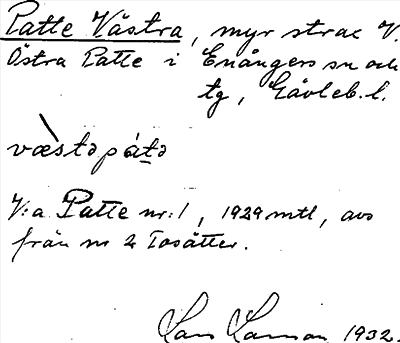 Patte Västra, myr strax V.
Östra Patte i Enångers sn och
tg, Gävleb. l.
væ̀stə pát̠ə
V:a Patte nr: 1, 1929 mtl, avs
från nr 2 Tosätter.
Lars 1932.